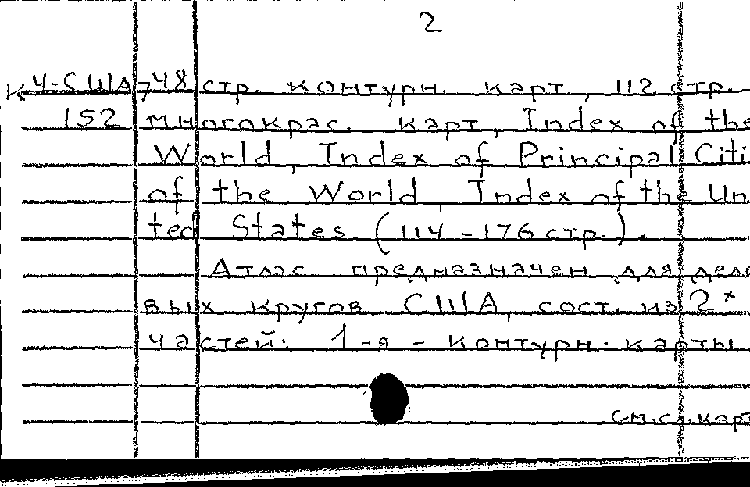 2
К 4-США-48 стр. контурн. карт, 112 стр.
152 многокрас. карт, Index of the
World, Index of Principal Citi
of the World Index of the Un
ted States (114-176 стр.).
Атлас предназначен для дело
вых кругов США, сост. из 2х
частей: 1-я - контурн. карты
см. сл. карт